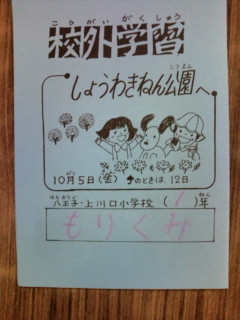 こうがいがくしゅう
校外学習
こうえん
しょうわきねん公園へ
がつ か きん
10月5日(金) ☂のときは、12日
はちおうじ ねん
八王子・上川口小学校 (1)年
もりくみ